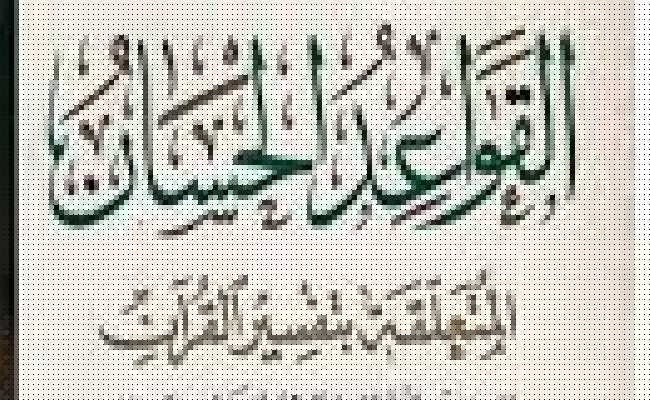 القواعد الحسان
المتعلقة بتفسير القرآن